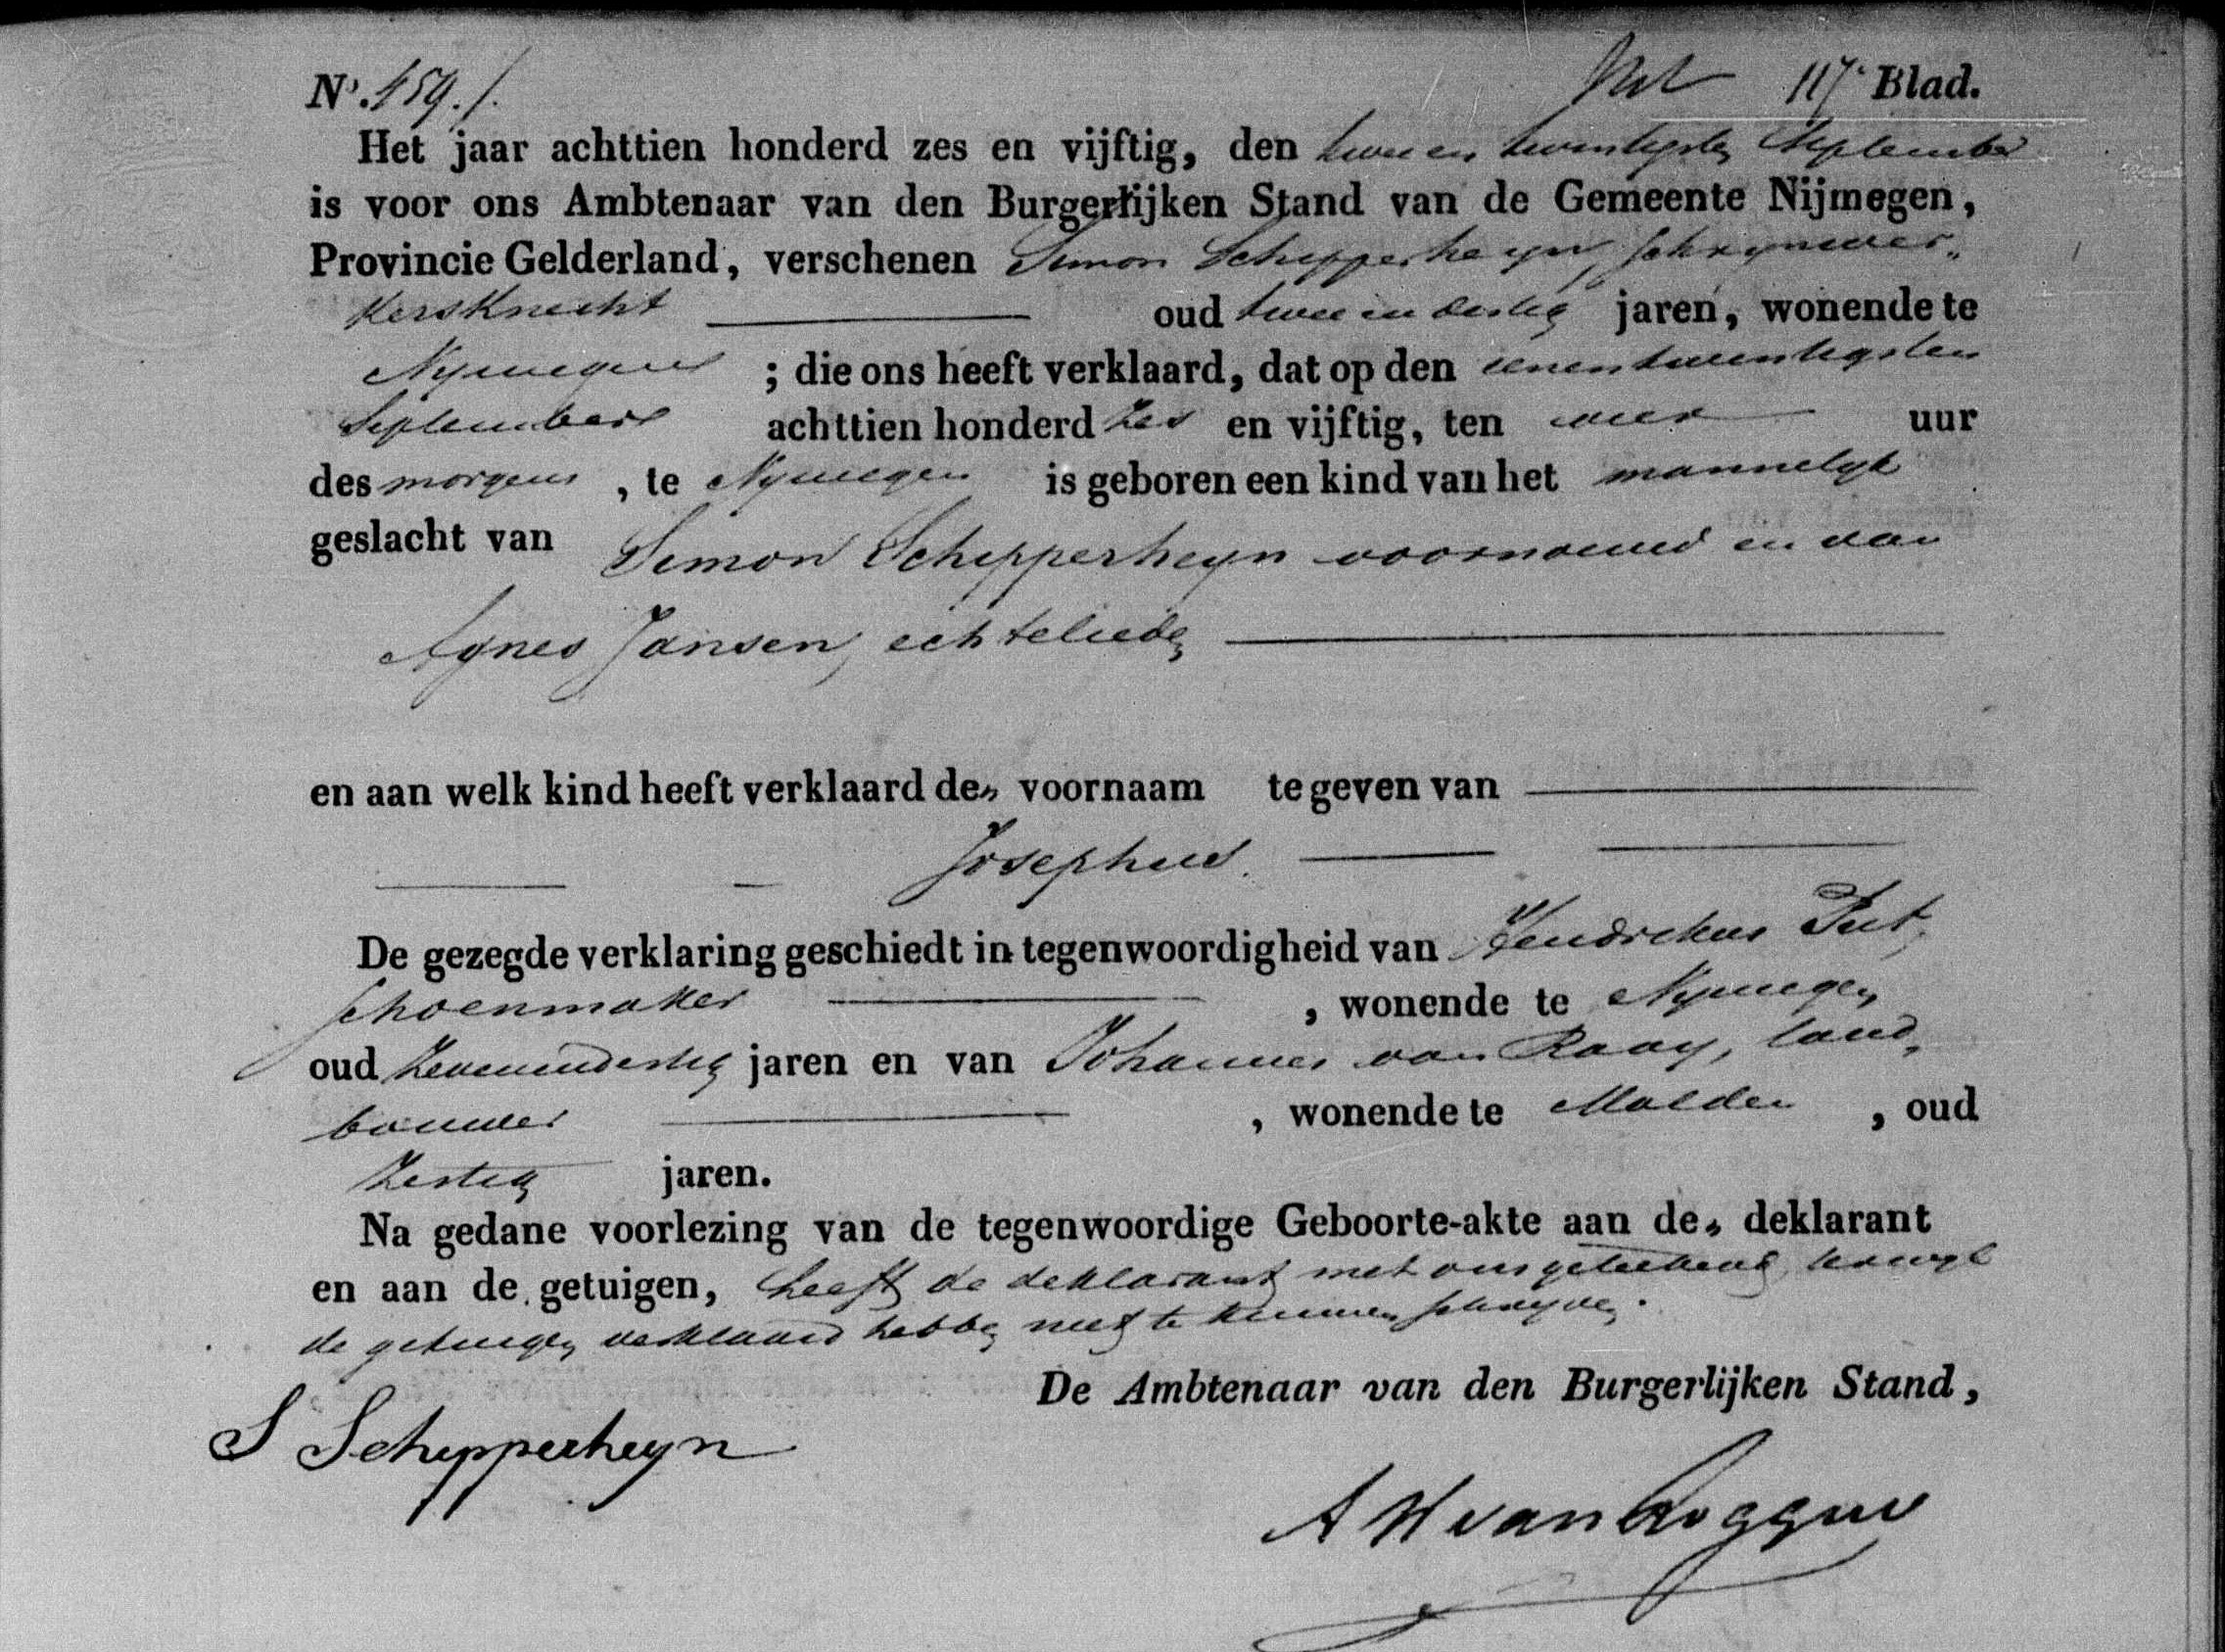 No. 459. 117e Blad.
Het jaar achttien honderd zes en vijftig, den twee en twintigsten September
is voor ons Ambtenaar van den Burgerlijken Stand van de Gemeente Nijmegen,
Provincie Gelderland, verschenen Simon Schipperheyn, schrynwer„
kersknecht oud twee en dertig jaren, wonende te
Nymegen ; die ons heeft verklaard, dat op den eenentwintigsten
September achttien honderd zes en vijftig, ten vier uur
des morgens , te Nymegen is geboren een kind van het mannelyk
geslacht van Simon Schipperheyn voornoemd en van
Agnes Jansen, echtelieden
en aan welk kind heeft verklaard den voornaam te geven van
Josephus.
De gezegde verklaring geschiedt in tegenwoordigheid van Hendrikus Put,
schoenmaker , wonende te Nymegen
oud zevenendertig jaren en van Johannes van Raay, land„
bouwer , wonende te Malden , oud
zestig jaren.
Na gedane voorlezing van de tegenwoordige Geboorte-akte aan den deklarant
en aan de getuigen, heeft de deklarant met ons geteekend, terwyl
de getuigen verklaard hebben niet te kunnen schryven.
De Ambtenaar van den Burgerlijken Stand,
S Schipperheyn
A W van